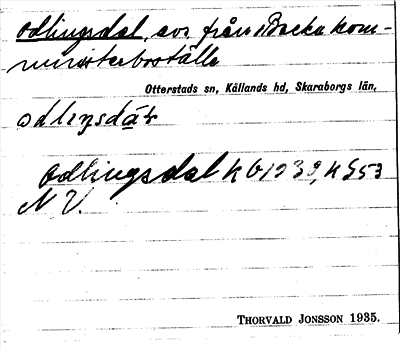 Odlingsdal, avs. från Backa kom-
ministerboställe
Otterstads sn, Kållands hd, Skaraborgs län,
Odlingsdal K
N V.
THORVALD JONSSON 1935.